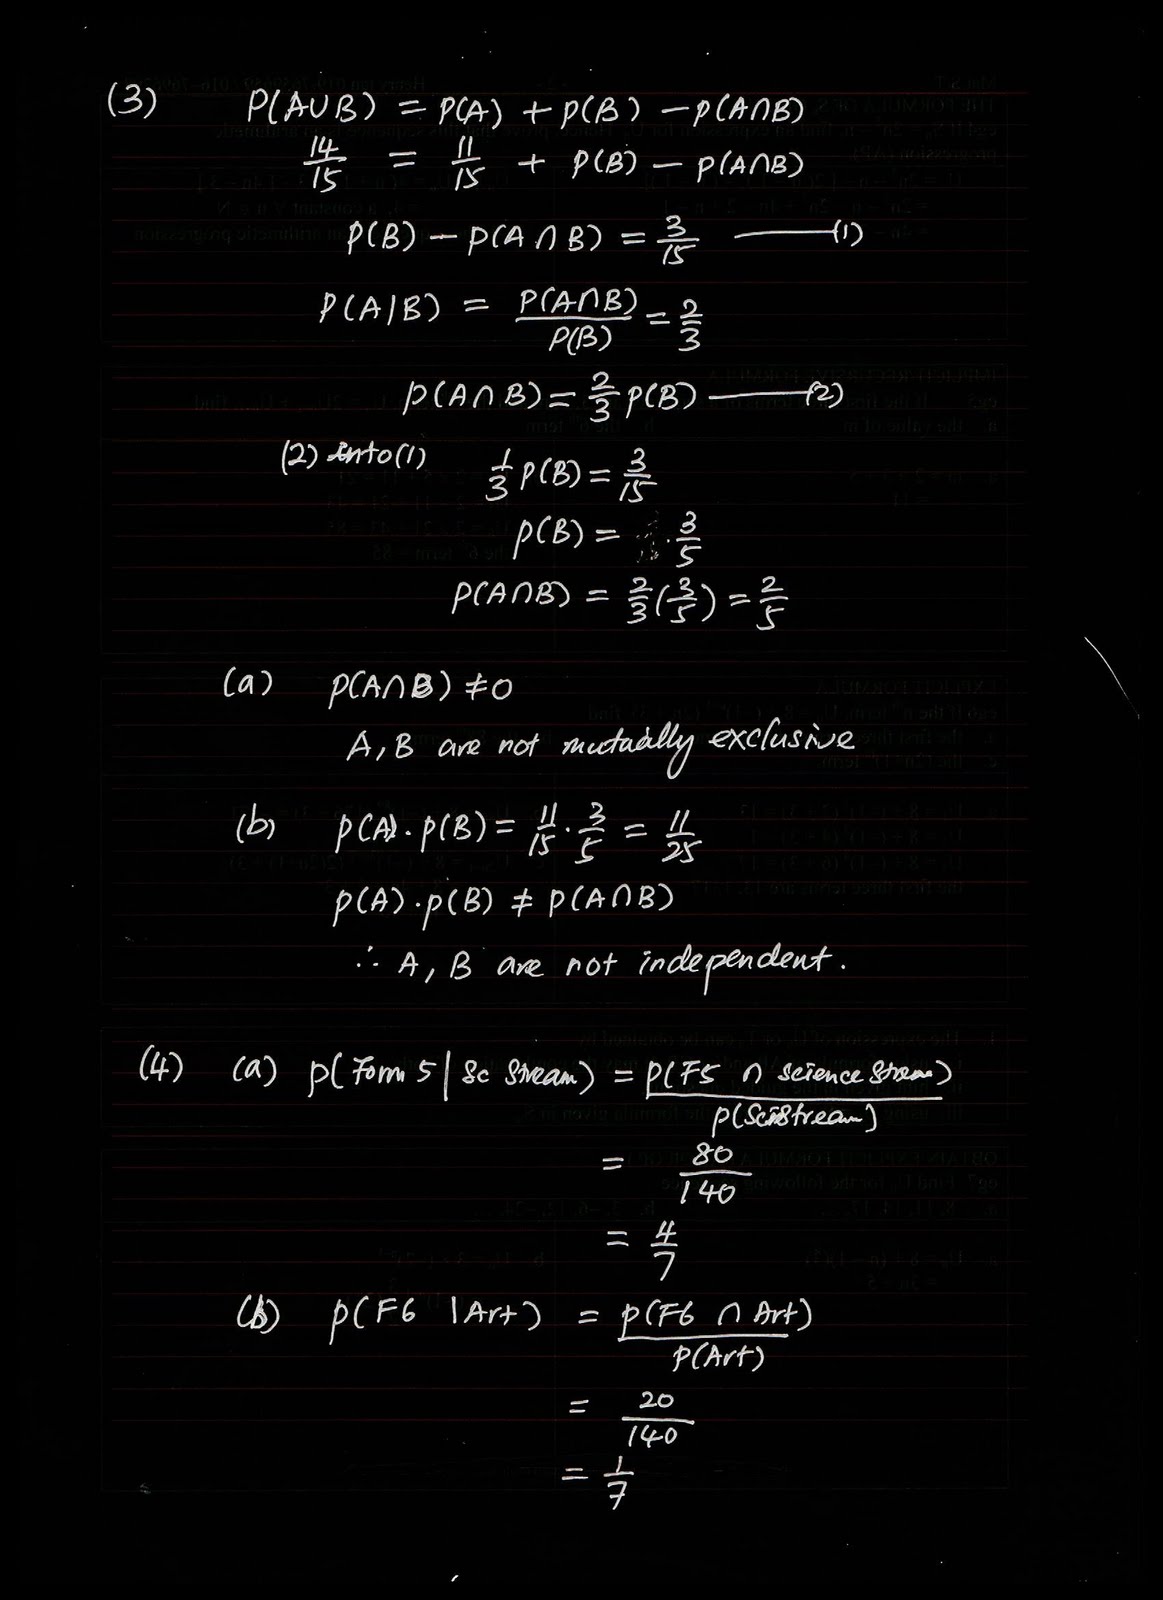 (3) P(A∪B) = P(A) + P(B) − P(A∩B)
14/15 = 11/15 + P(B) − P(A∩B)
P(B) − P(A∩B) = 3/15 ——— (1)
P(A|B) = P(A∩B)/P(B) = 2/3
P(A∩B) = 2/3 P(B) ——— (2)
(2) into (1) 1/3 P(B) = 3/15
P(B) = 3/5
P(A∩B) = 2/3 (3/5) = 2/5
(a) P(A∩B) ≠ 0
A, B are not mutually exclusive
(b) P(A) · P(B) = 11/15 · 3/5 = 11/25
P(A) · P(B) ≠ P(A∩B)
∴ A, B are not independent.
(4) (a) P(Form 5 | Sc Stream) = P(F5 ∩ Science Stream)/P(Sci Stream)
= 80/140
= 4/7
(b) P(F6 | Art) = P(F6 ∩ Art)/P(Art)
= 20/140
= 1/7